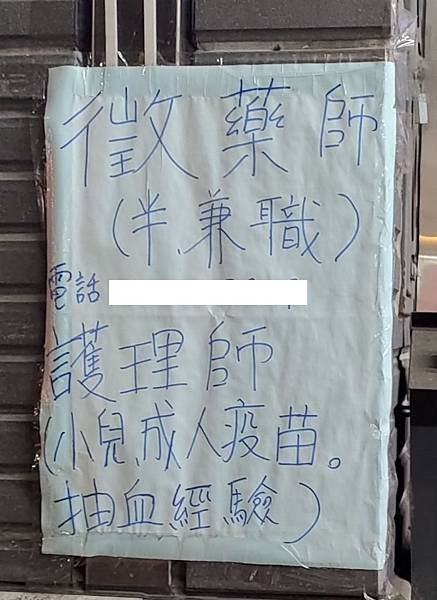 徵藥師
(半、兼職)
電話
護理師
(小兒、成人疫苗。
抽血經驗)